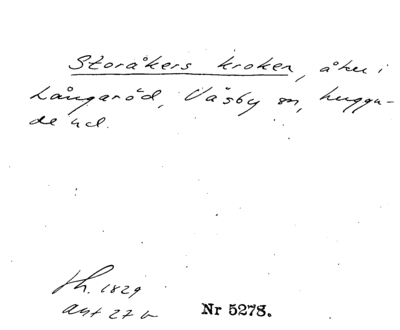 Storåkers kroken, åker i
Långaröd, Väsby sn, Luggu-
de hd.
Lh. 1829
akt 27
Nr 5278.